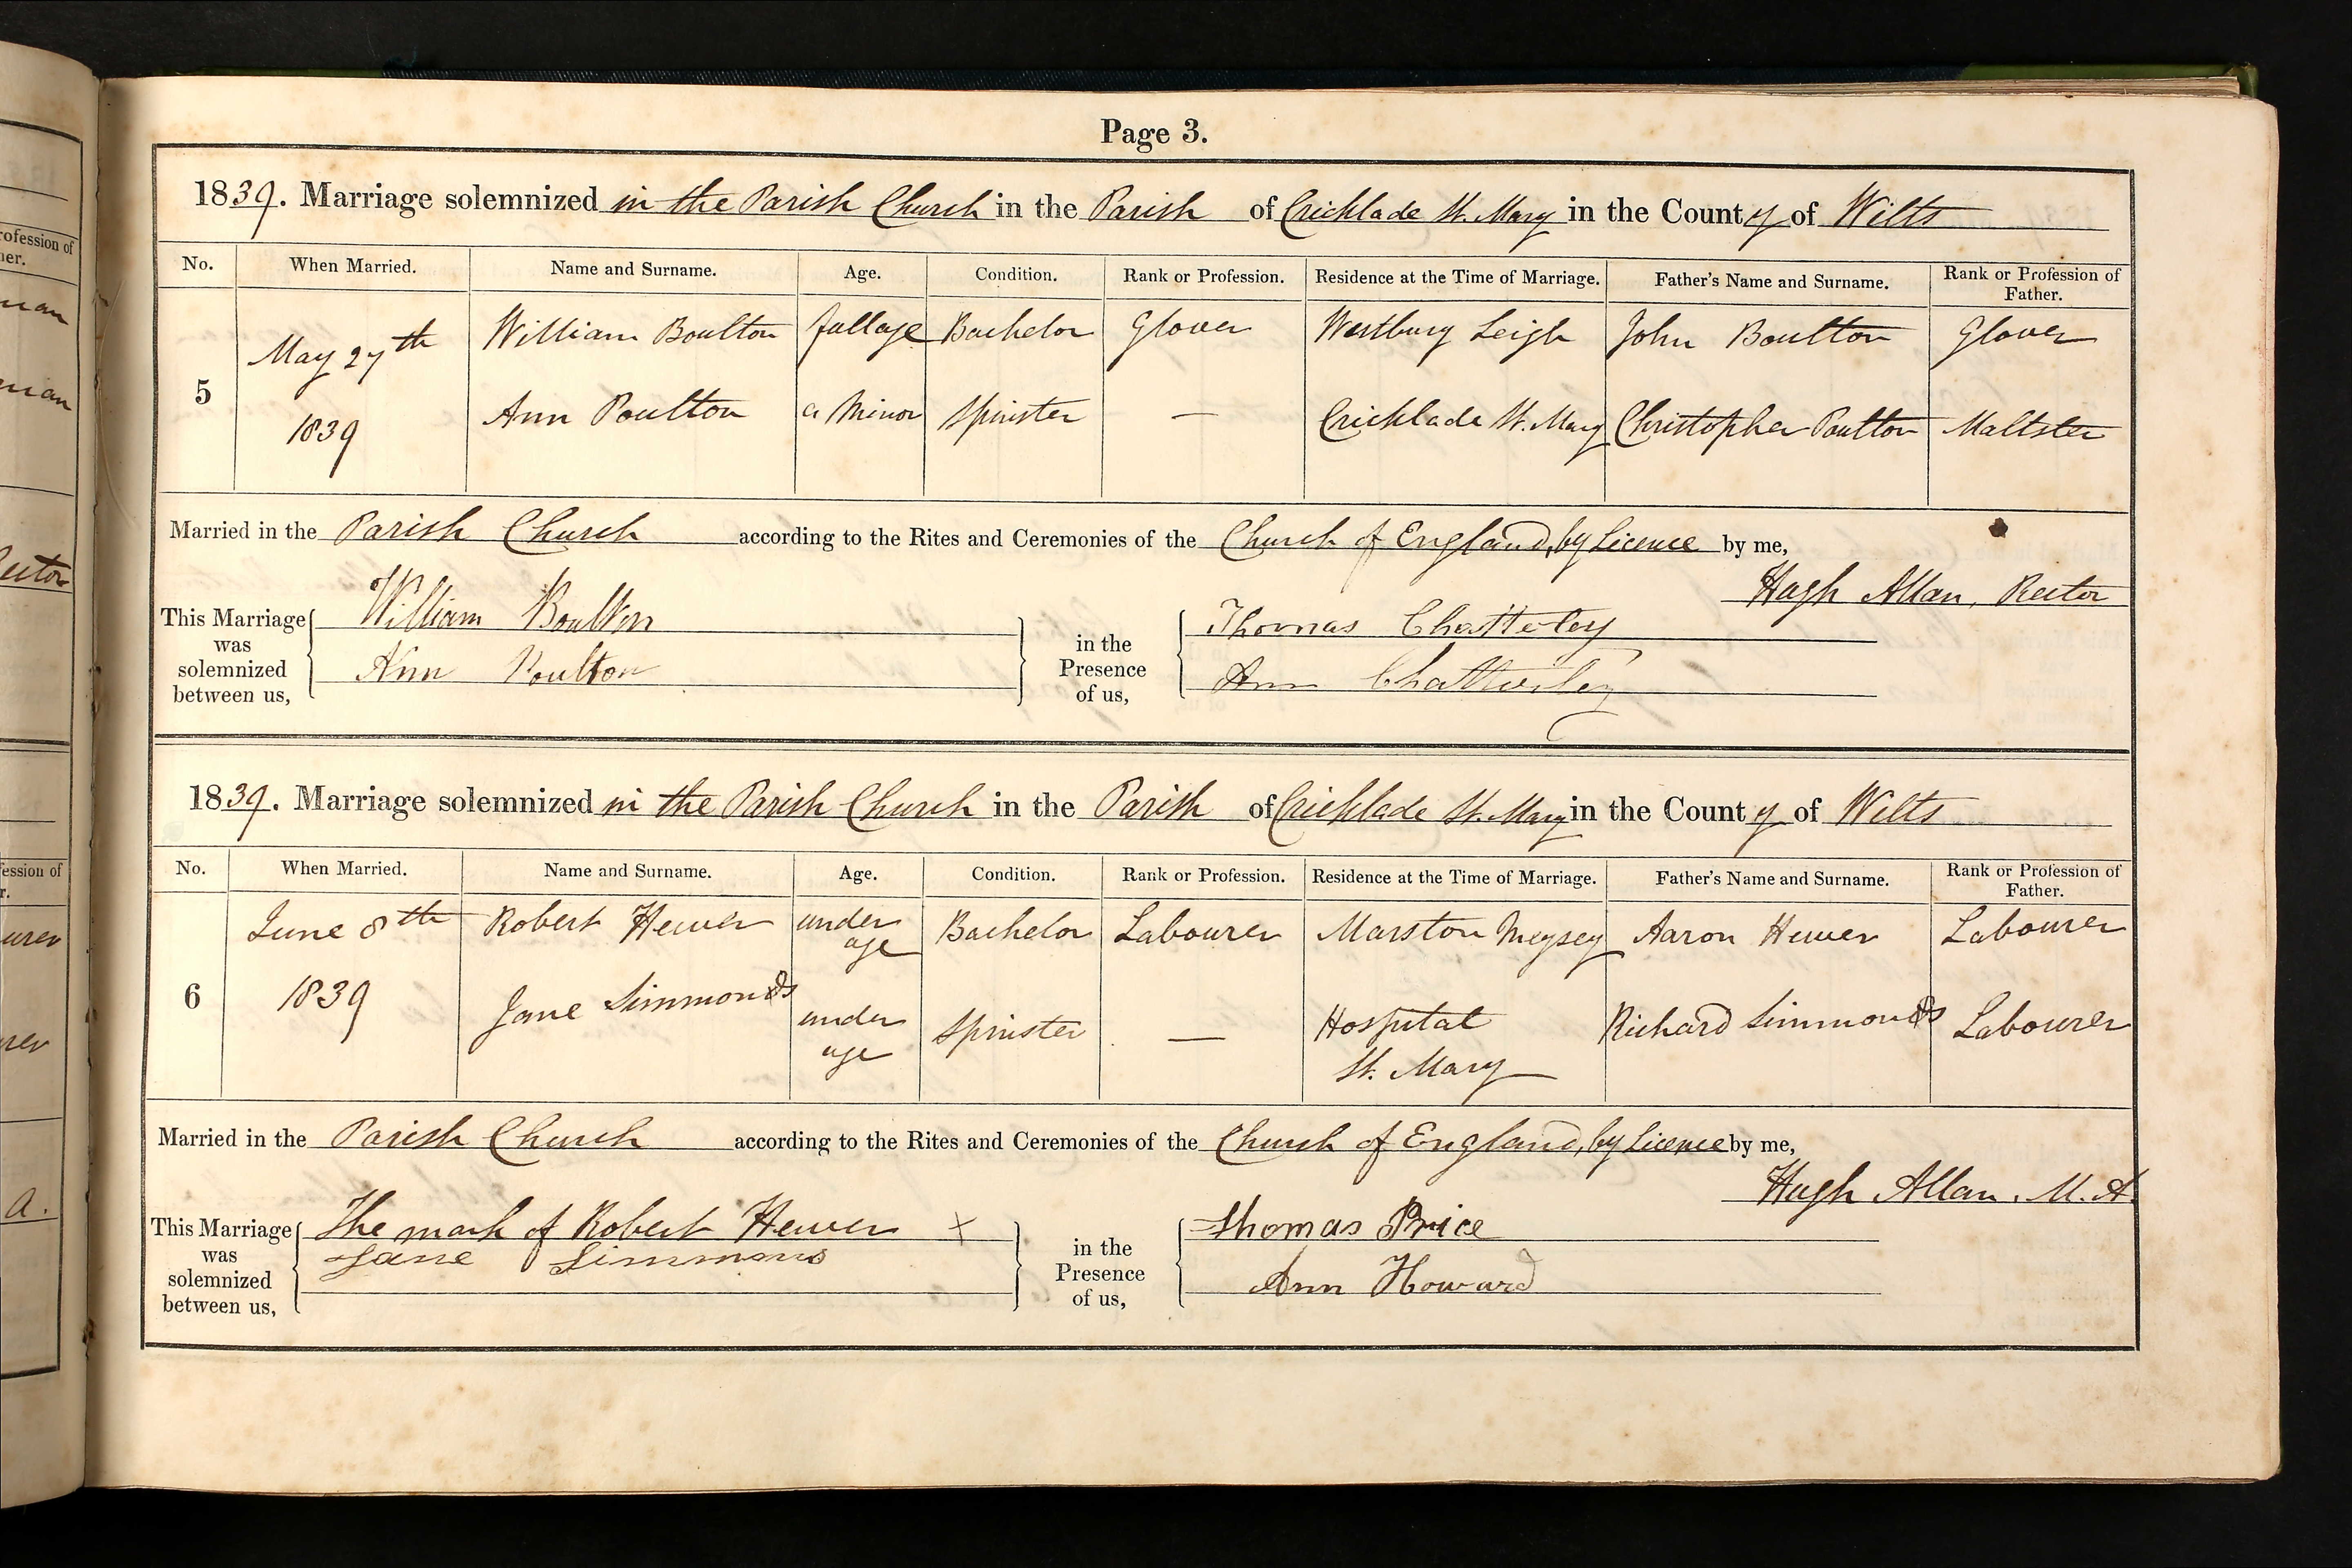 Page 3.
1839. Marriage solemnized in the Parish Church in the Parish of Cricklade St. Mary in the County of Wilts
No. When Married. Name and Surname. Age. Condition. Rank or Profession. Residence at the Time of Marriage. Father's Name and Surname. Rank or Profession of Father.
5 May 27th 1839 William Boulton full age Bachelor Glover Westbury Leigh John Boulton Glover
Ann Poulton a Minor Spinster — Cricklade St. Mary Christopher Poulton Maltster
Married in the Parish Church according to the Rites and Ceremonies of the Church of England, by Licence by me,
Hugh Allan, Rector
This Marriage was solemnized between us, William Boulton Ann Poulton in the Presence of us, Thomas Chatterley Ann Chatterley
1839. Marriage solemnized in the Parish Church in the Parish of Cricklade St. Mary in the County of Wilts
No. When Married. Name and Surname. Age. Condition. Rank or Profession. Residence at the Time of Marriage. Father's Name and Surname. Rank or Profession of Father.
6 June 8th 1839 Robert Hewer under age Bachelor Labourer Marston Meysey Aaron Hewer Labourer
Jane Simmonds under age Spinster — Hospital St. Mary Richard Simmonds Labourer
Married in the Parish Church according to the Rites and Ceremonies of the Church of England, by Licence by me,
Hugh Allan, M.A.
This Marriage was solemnized between us, The mark of Robert Hewer X Jane Simmons in the Presence of us, Thomas Price Ann Howard